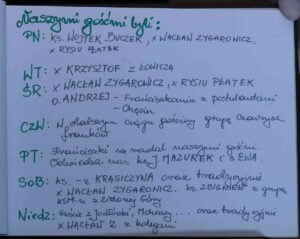 Naszymi gośćmi byli:
PN: KS. WOJTEK BUCZEK, x WACŁAW ZYGAROWICZ,
x RYSIU PŁATEK
WT: x KRZYSZTOF z ŁOWICZA
ŚR: x WACŁAW ZYGAROWICZ, x RYSIU PŁATEK
O. ANDRZEJ - Franciszkanin z postulantami
- Chęcin
CZW: W dalszym ciągu gościmy grupę Oazowych
PT: Franciszki są nadal naszymi gośćmi.
Odwiedza nas ks. J. MAZUREK i s. EWA.
SOB: KS. - z KRASICZYNA oraz tradycyjnie
x WACŁAW ZYGAROWICZ. KS. ZBIGNIEW z grupą
KSM-u z Góry
Niedz: Goście z oraz tradycyjnie
x WACŁAW Z. z kolegami